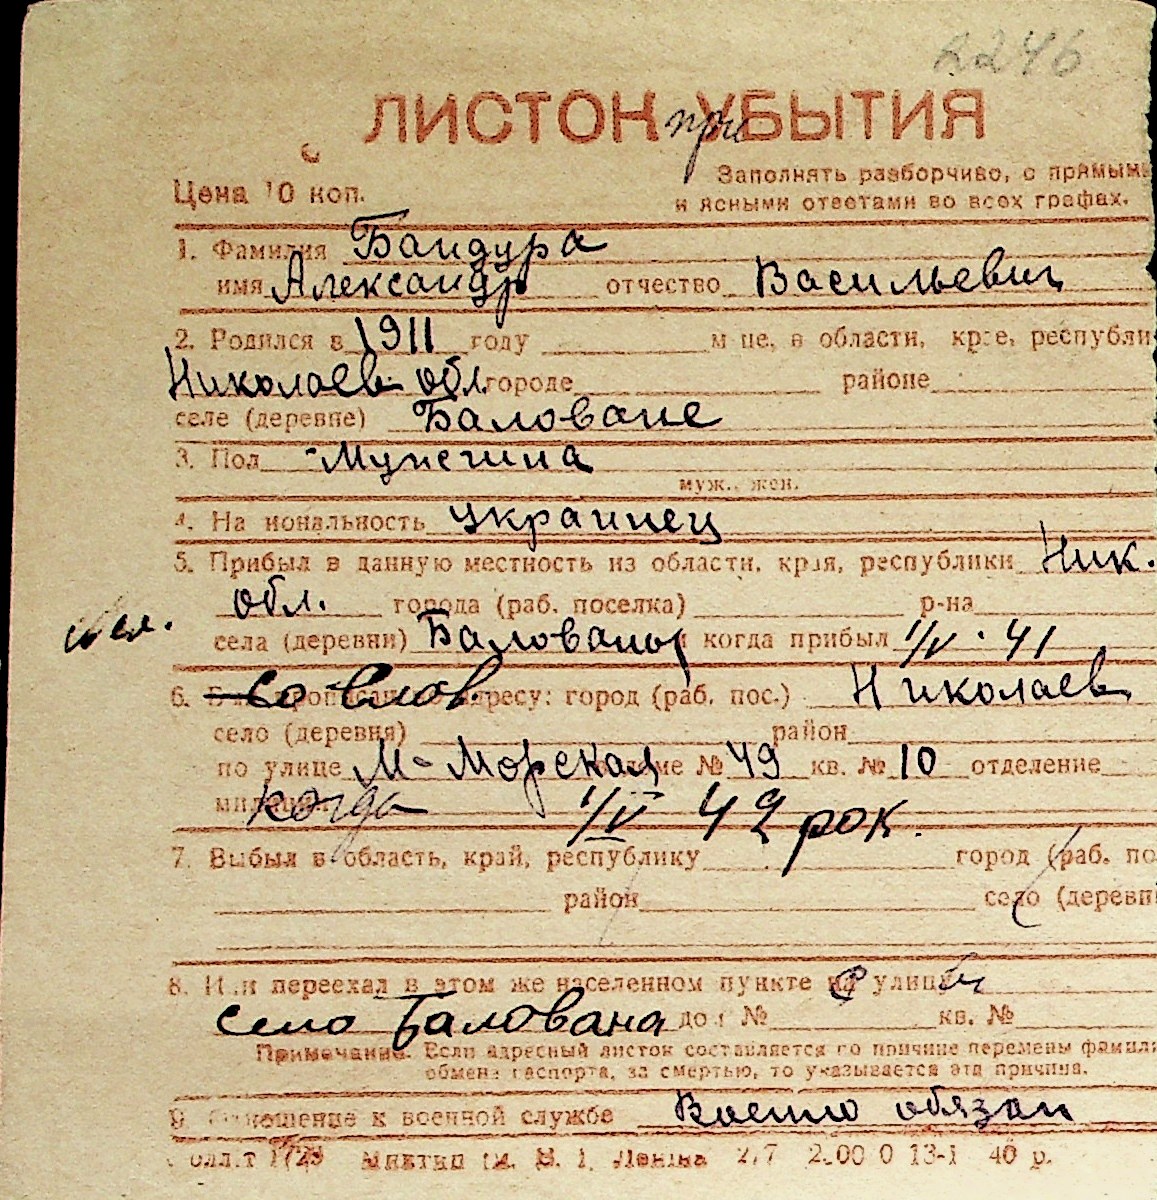 2246
ЛИСТОК при УБЫТИЯ
Цена 10 коп.
Заполнять разборчиво, с прямыми
и ясными ответами во всех графах.
1. Фамилия Бандура
имя Александр отчество Василевич
2. Родился в 1911 году м-це, в области, крае, республи
Николаев обл. городе районе
селе (деревне) Баловане
3. Пол Мужчина
муж., жен.
4. Национальность украинец
5. Прибыл в данную местность из области, края, республики Ник.
обл. города (раб. поселка) р-на
села (деревни) Балованы и когда прибыл 1/IV - 41
6. со слов адресу: город (раб. пос.) Николаев
село (деревня) район
по улице М-Морская доме № 49 кв. № 10 отделение
милиции когда 1/IV 42 рок.
7. Выбыл в область, край, республику город (раб. по
район село (деревн
8. Или переехал в этом же населенном пункте на улицу
село Балована дом № кв. №
Примечание. Если адресный листок составляется по причине перемены фамили
обмена паспорта, за смертью, то указывается эта причина.
9. Отношение к военной службе Военно обязан
1723 Ленина 277 13-1 40 р.